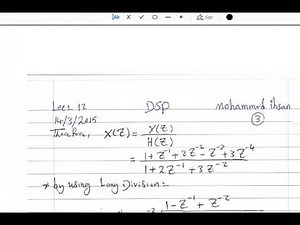 Lec1 12 DSP Mohammed Ihsan
14/3/2015 3
Therefore, X(Z) = Y(Z) / H(Z)
= 1+Z⁻¹+2Z⁻²-Z⁻³+3Z⁻⁴ / 1+2Z⁻¹+3Z⁻²
* by using Long Division:-
1-Z⁻¹+Z⁻²